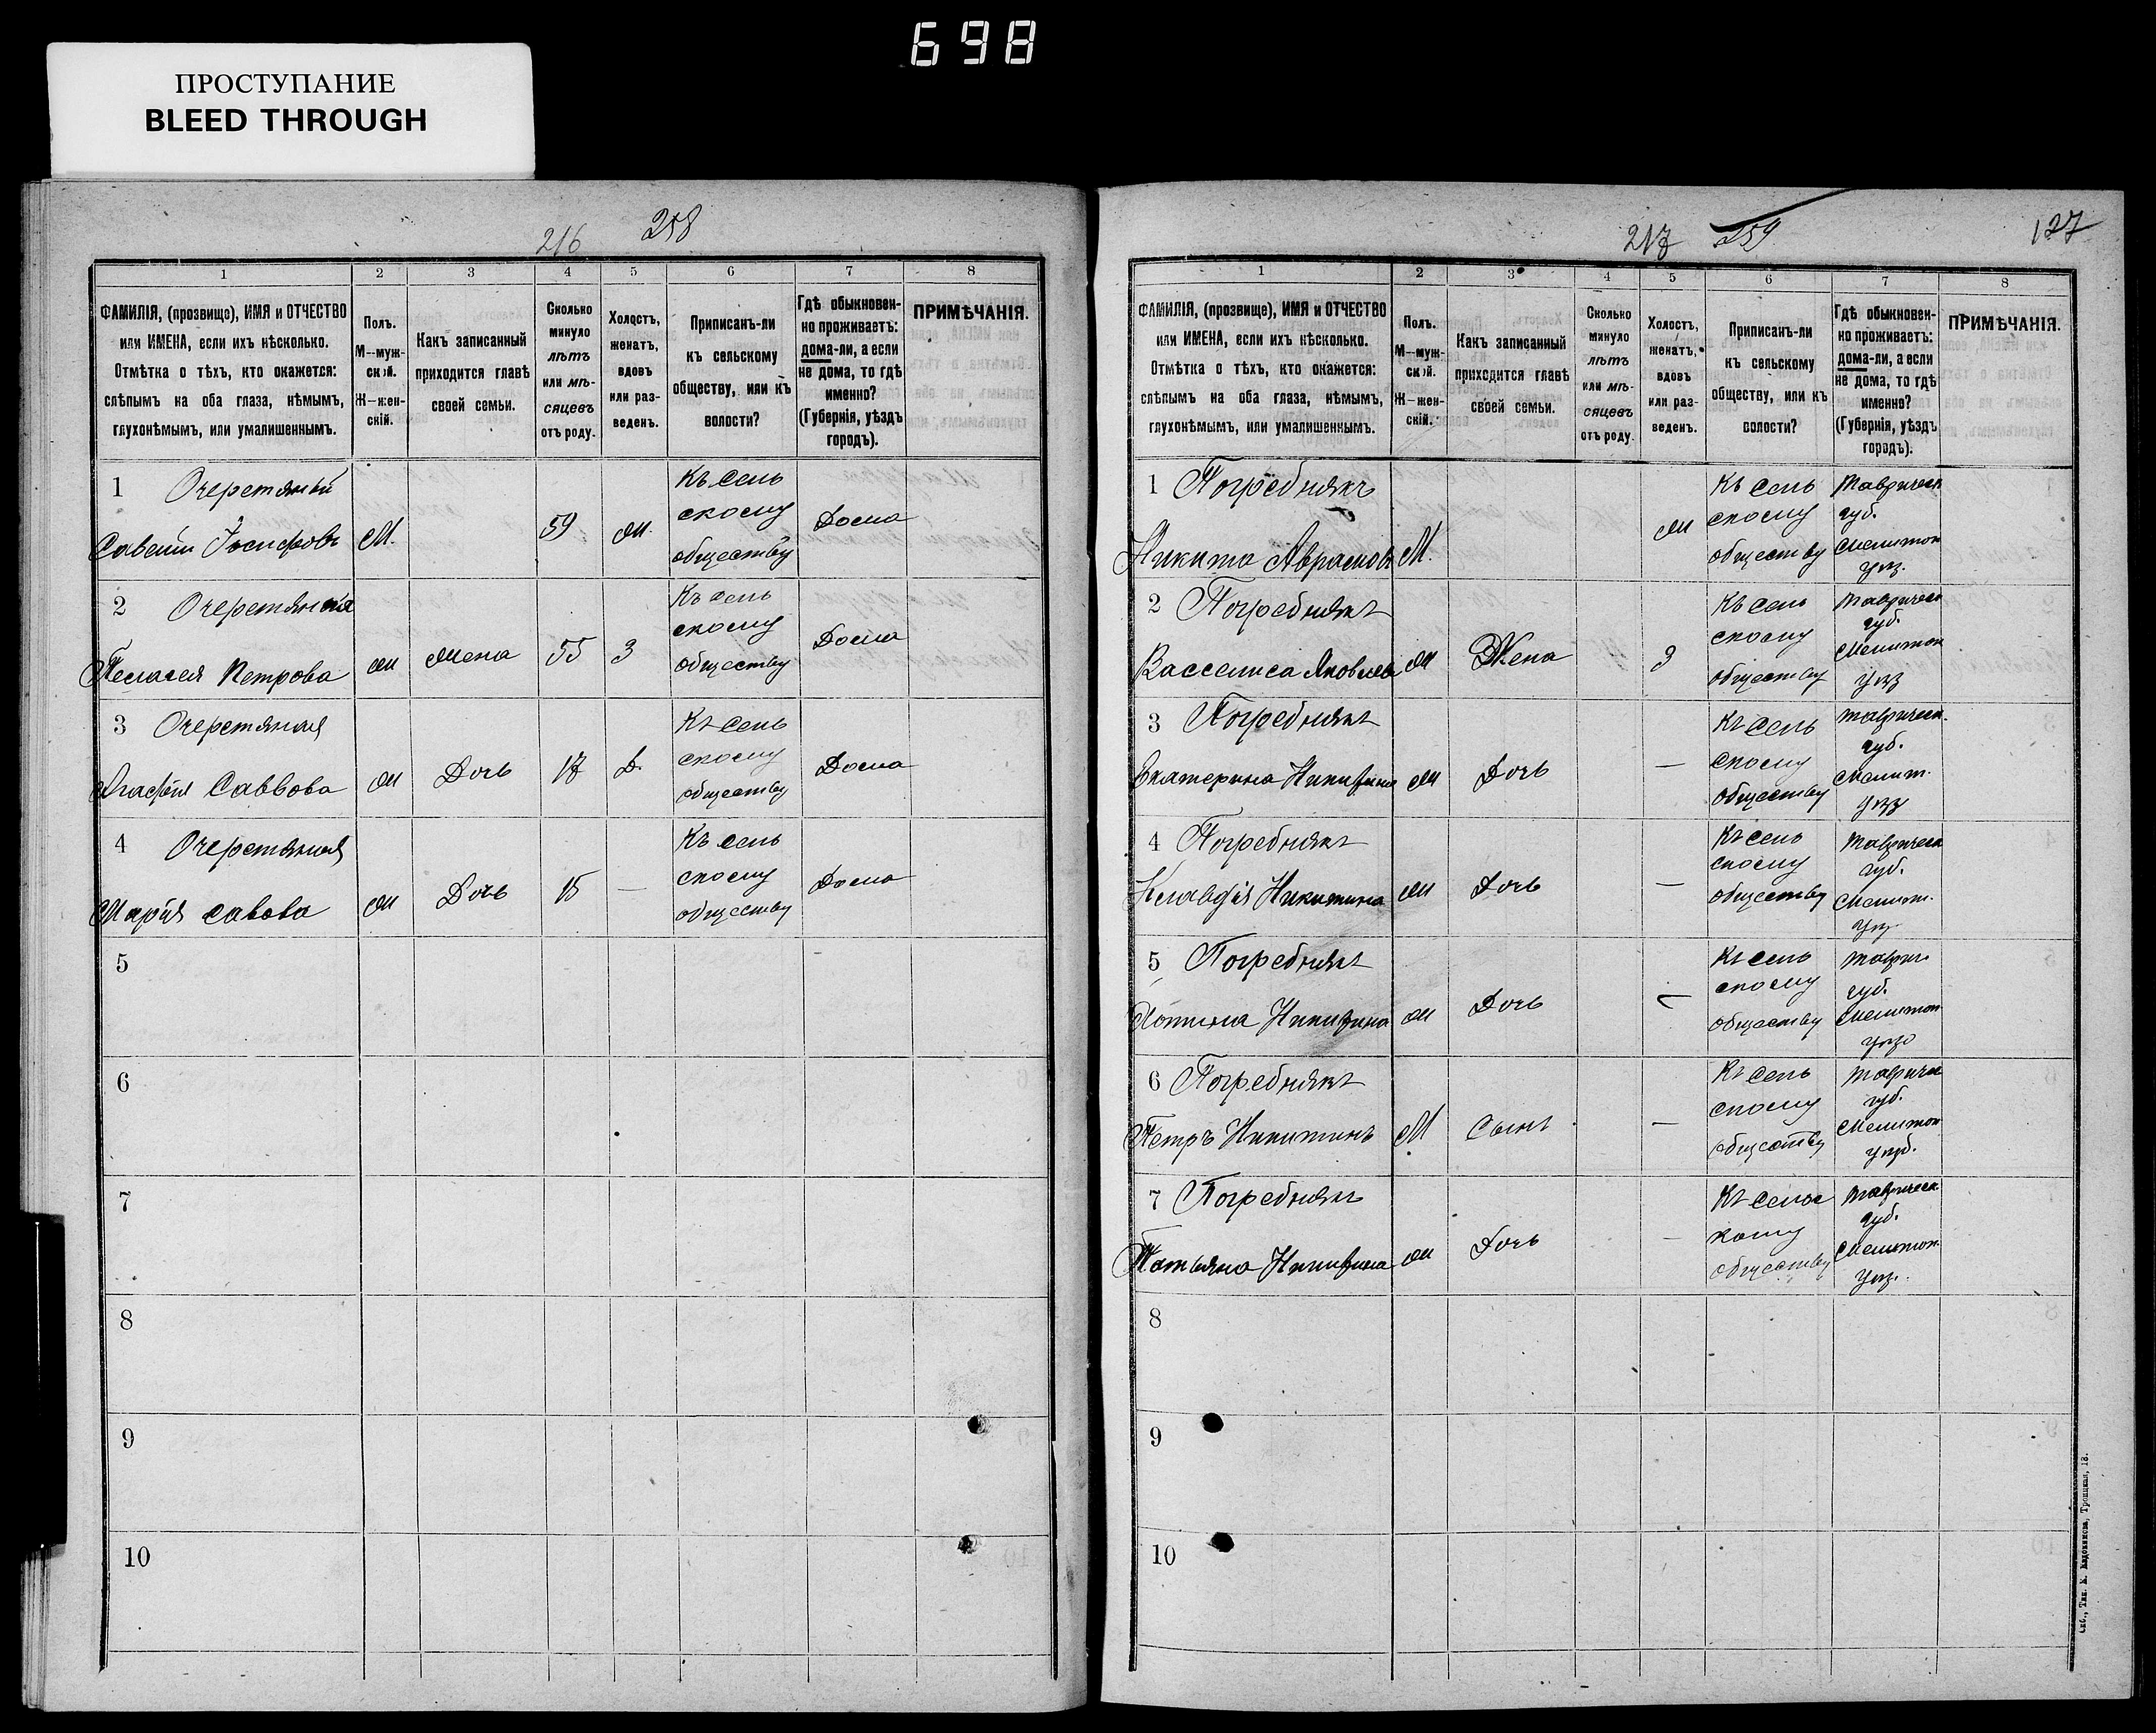 698
ПРОСТУПАНИЕ
BLEED THROUGH
216 258
1 2 3 4 5 6 7 8
ФАМИЛІЯ, (прозвище), ИМЯ и ОТЧЕСТВО
или ИМЕНА, если ихъ нѣсколько.
Отмѣтка о тѣхъ, кто окажется:
слѣпымъ на оба глаза, нѣмымъ,
глухонѣмымъ, или умалишеннымъ.
Полъ.
М—муж-
ской.
Ж—жен-
скій.
Какъ записанный
приходится главѣ
своей семьи.
Сколько
минуло
лѣтъ
или мѣ-
сяцевъ
отъ роду.
Холостъ,
женатъ,
вдовъ
или раз-
веденъ.
Приписанъ-ли
къ сельскому
обществу, или къ
волости?
Гдѣ обыкновен-
но проживаетъ:
дома-ли, а если
не дома, то гдѣ
именно?
(Губернія, уѣздъ
городъ).
ПРИМѢЧАНІЯ.
1 Очеретяный
Іосифовъ М. 59 Ж.
Къ сель
скому
обществу
Дома
2 Очеретяная
Пелагея Петрова Ж Жена 55 З
Къ сель
скому
обществу
Дома
3 Очеретяная
Агафія Саввова Ж Дочь 17 Д.
Къ сель
скому
обществу
Дома
4 Очеретяная
Марія Савова Ж Дочь 15 —
Къ сель
скому
обществу
Дома
5
6
7
8
9
10
217 259 127
1 2 3 4 5 6 7 8
ФАМИЛІЯ, (прозвище), ИМЯ и ОТЧЕСТВО
или ИМЕНА, если ихъ нѣсколько.
Отмѣтка о тѣхъ, кто окажется:
слѣпымъ на оба глаза, нѣмымъ,
глухонѣмымъ, или умалишеннымъ.
Полъ.
М—муж-
ской.
Ж—жен-
скій.
Какъ записанный
приходится главѣ
своей семьи.
Сколько
минуло
лѣтъ
или мѣ-
сяцевъ
отъ роду.
Холостъ,
женатъ,
вдовъ
или раз-
веденъ.
Приписанъ-ли
къ сельскому
обществу, или къ
волости?
Гдѣ обыкновен-
но проживаетъ:
дома-ли, а если
не дома, то гдѣ
именно?
(Губернія, уѣздъ
городъ).
ПРИМѢЧАНІЯ.
1 Погребнякъ
Никита Аврамовъ М. Ж
Къ сель
скому
обществу
Таврическ
губ.
Мелитоп
уѣз.
2 Погребнякъ
Васселиса Яковлева Ж Жена З
Къ сель
скому
обществу
Тавричес
губ.
Мелитоп
уѣз
3 Погребнякъ
Екатерина Никитина Ж Дочь —
Къ сель
скому
обществу
Тавричес.
губ.
Мелит.
уѣз
4 Погребнякъ
Клавдія Никитина Ж Дочь —
Къ сель
скому
обществу
Тавричес
губ.
Мелит.
уѣз
5 Погребнякъ
Никитина Ж Дочь —
Къ сель
скому
обществу
Таврич
губ.
Мелитоп
уѣз
6 Погребнякъ
Петръ Никитинъ М Сынъ —
Къ сель
скому
обществу
Тавриче
губ.
Мелитоп
уѣз.
7 Погребнякъ
Татьяна Никитина Ж Дочь —
Къ сельс
кому
обществу
Тавричес.
губ.
Мелитоп.
уѣз.
8
9
10